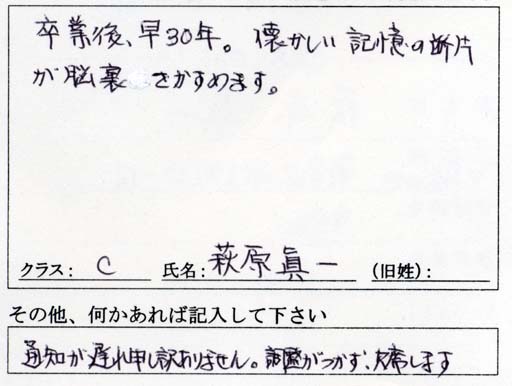 卒業後、早30年。懐かしい記憶の断片
が脳裏をかすめます。
クラス: C 氏名: 萩原眞一 (旧姓):
その他、何かあれば記入して下さい
通知が遅れ申し訳ありません。調整がつかず、欠席します